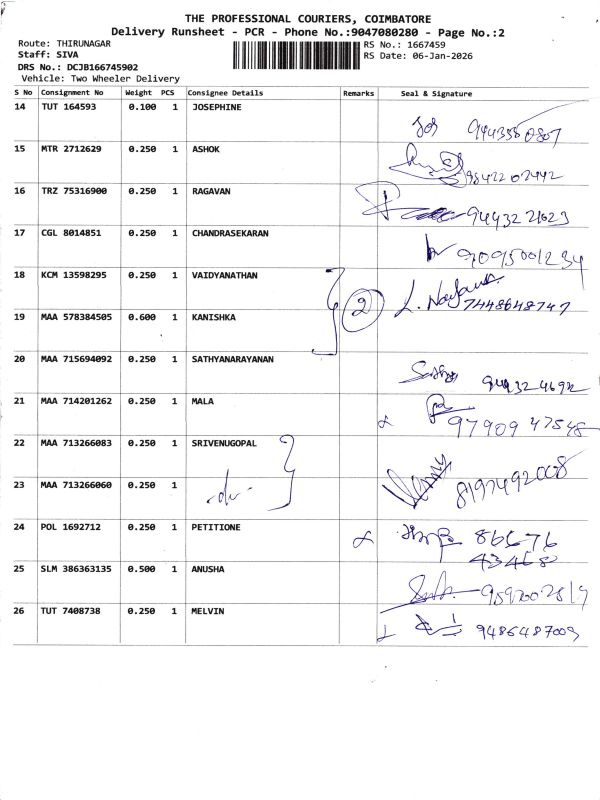 THE PROFESSIONAL COURIERS, COIMBATORE
Delivery Runsheet - PCR - Phone No.:9047080280 - Page No.:2
Route: THIRUNAGAR
RS No.: 1667459
Staff: SIVA
RS Date: 06-Jan-2026
DRS No.: DCJB166745902
Vehicle: Two Wheeler Delivery
S No Consignment No Weight PCS Consignee Details Remarks Seal & Signature
14 TUT 164593 0.100 1 JOSEPHINE
15 MTR 2712629 0.250 1 ASHOK
9842202442
16 TRZ 75316900 0.250 1 RAGAVAN
9443221623
17 CGL 8014851 0.250 1 CHANDRASEKARAN
9095001234
18 KCM 13598295 0.250 1 VAIDYANATHAN
2
7448648747
19 MAA 578384505 0.600 1 KANISHKA
20 MAA 715694092 0.250 1 SATHYANARAYANAN
21 MAA 714201262 0.250 1 MALA
9790947548
22 MAA 713266083 0.250 1 SRIVENUGOPAL
23 MAA 713266060 0.250 1 -do-
8197492008
24 POL 1692712 0.250 1 PETITIONE
86676
43468
25 SLM 386363135 0.500 1 ANUSHA
26 TUT 7408738 0.250 1 MELVIN
9486487009